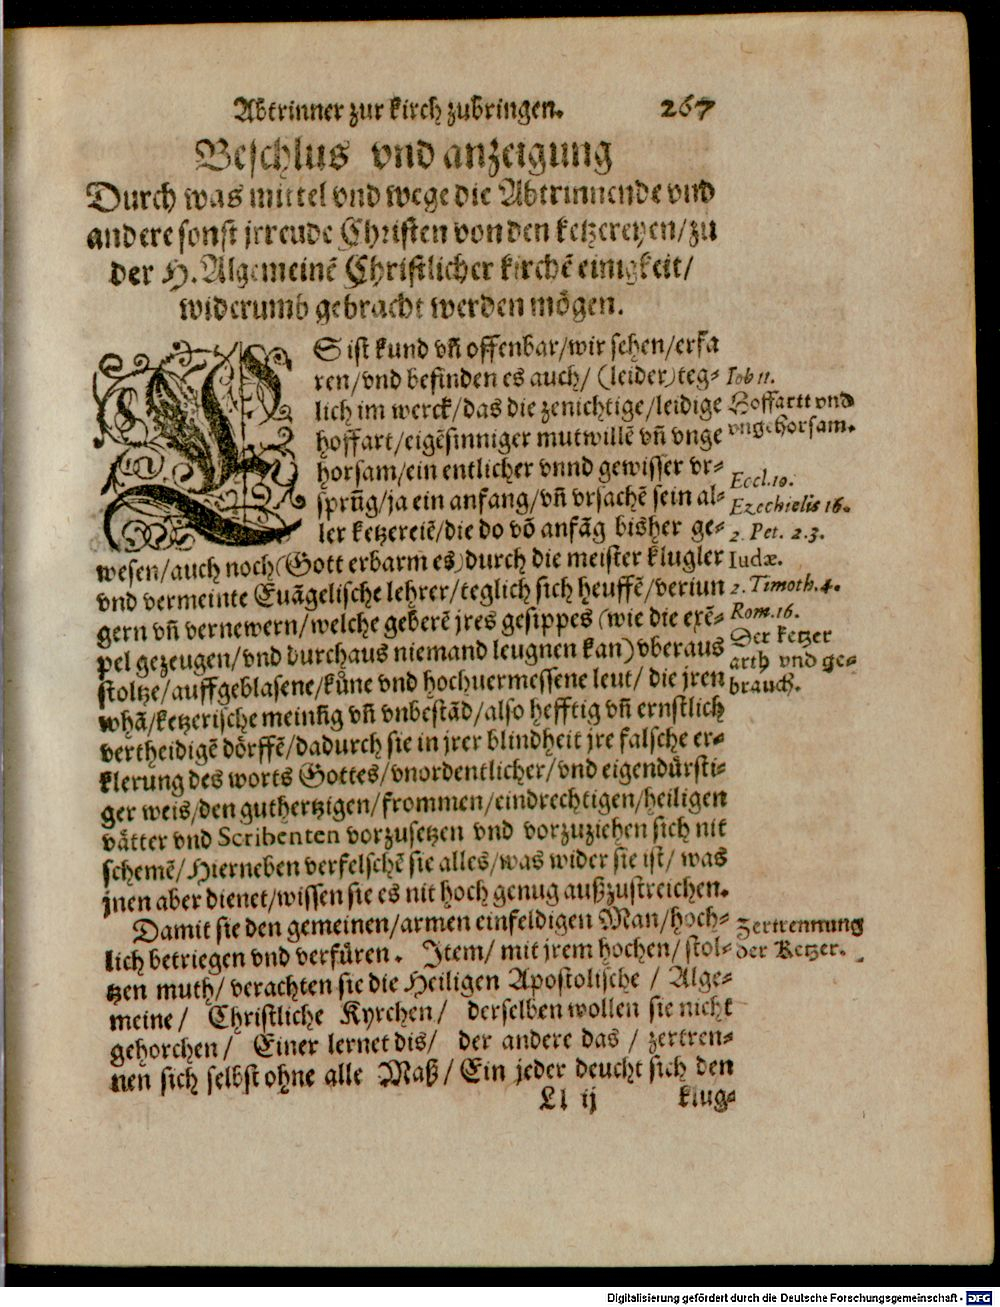 Abtrinner zur kirch zubringen. 267
Beschlus vnd anzeigung
Durch was mittel vnd wege die Abtrinnende vnd
andere sonst jrrende Christen von den ketzereyen/zu
der H. Algemeinē Christlicher kirchē einigkeit/
widerumb gebracht werden mögen.
ES ist kund vñ offenbar/wir sehen/erfa
ren/vnd befinden es auch/ (leider) teg⸗
lich im werck/das die zenichtige/leidige
hoffart/eigēsinniger mutwillē vñ vnge
horsam/ein entlicher vnnd gewisser vr⸗
sprūg/ja ein anfang/vñ vrsachē sein al⸗
ler ketzereiē/die do vō anfāg bisher ge⸗
wesen/auch noch (Gott erbarm es) durch die meister klugler
vnd vermeinte Euāgelische lehrer/teglich sich heuffē/veriun
gern vñ vernewern/welche geberē jres gesippes (wie die exē⸗
pel gezeugen/vnd durchaus niemand leugnen kan) vberaus
stoltze/auffgeblasene/küne vnd hochuermessene leut/ die jren
whā/ketzerische meinūg vñ vnbestād/also hefftig vñ ernstlich
vertheidigē dörffē/dadurch sie in jrer blindheit jre falsche er⸗
klerung des worts Gottes/vnordentlicher/vnd eigendürsti⸗
ger weis/den guthertzigen/frommen/eindrechtigen/heiligen
vätter vnd Scribenten vorzusetzen vnd vorzuziehen sich nit
schemē/ Hierneben verfelschē sie alles/was wider sie ist/ was
jnen aber dienet/wissen sie es nit hoch genug außzustreichen.
Damit sie den gemeinen/armen einfeldigen Man/hoch⸗
lich betriegen vnd verfüren. Item/ mit jrem hochen/ stol⸗
tzen muth/ verachten sie die Heiligen Apostolische / Alge⸗
meine/ Christliche Kyrchen/ derselben wollen sie nicht
gehorchen/ Einer lernet dis/ der andere das / zertren⸗
nen sich selbst ohne alle Maß/ Ein jeder deucht sich den
Ll ij klug⸗
Iob 11.
Hoffartt vnd
vngehorsam.
Eccl. 10.
Ezechielis 16.
2. Pet. 2.3.
Iudæ.
2. Timoth. 4.
Rom. 16.
Der ketzer
arth vnd ge⸗
brauch.
Zertrennung
der Ketzer.
Digitalisierung gefördert durch die Deutsche Forschungsgemeinschaft - DFG